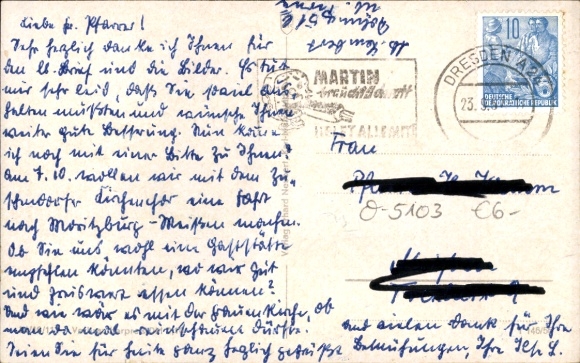 Liebe Fr. Pfarrer!
Sehr herzlich danke ich Ihnen für
den lb. Brief und die Bilder. Es tut
mir sehr leid, daß Sie soviel aus-
halten mußten und wünsche Ihnen
weiter gute Besserung. Nun komme
ich noch mit einer Bitte zu Ihnen:
am 7.10. wollen wir mit dem
Kirchenchor eine Fahrt
nach Moritzburg - Meißen machen.
Ob Sie uns wohl eine Gaststätte
empfehlen könnten, wo wir gut
und preiswert essen können?
Und wie wär es mit der Frauenkirche, ob
man da mal reinschauen dürfte.
Seien Sie für heute ganz herzlich gegrüßt
und vielen Dank für Ihre
Bemühungen, Ihre
MARTIN
braucht Schrott
HELFT ALLE MIT!
DRESDEN A24
23.
10
DEUTSCHE
DEMOKRATISCHE REPUBLIK
Frau
O-5103 €6-